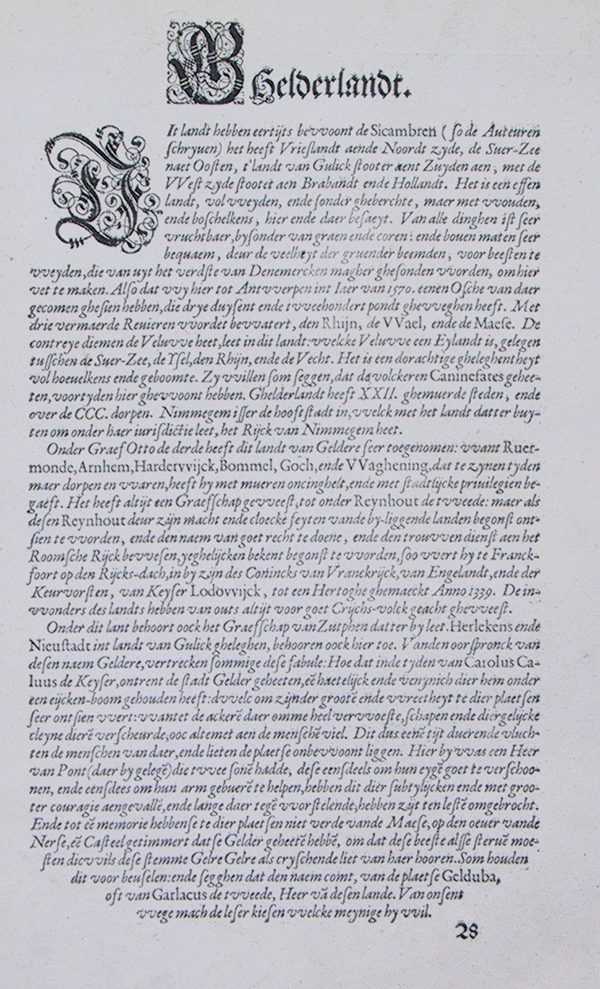 Ghelderlandt.
DIt landt hebben eertijts bevvoont de Sicambren ( so de Auteuren
schryuen) het heeft Vrieslandt aende Noordt zyde, de Suer-Zee
naet Oosten, t'landt van Gulick stooter aent Zuyden aen, met de
VVest zyde stootet aen Brabandt ende Hollandt. Het is een effen
landt, vol vveyden, ende sonder gheberchte, maer met vvouden,
ende boschelkens, hier ende daer besaeyt. Van alle dinghen ist seer
vruchtbaer, bysonder van graen ende coren: ende bouen maten seer
bequaem, deur de veelheyt der gruender beemden, voor beesten te
vveyden, die van uyt het verdste van Denemercken magher ghesonden vvorden, om hier
vet te maken. Also dat vvy hier tot Antvverpen int Iaer van 1570. eenen Osche van daer
gecomen ghesien hebben, die drye duysent ende tvveehondert pondt ghevveghen heeft. Met
drie vermaerde Reuieren vvordet bevvatert, den Rhijn, de VVael, ende de Maese. De
contreye diemen de Veluvve heet, leet in dit landt: vvelcke Veluvve een Eylandt is, gelegen
tusschen de Suer-Zee, de Ysel, den Rhijn, ende de Vecht. Het is een dorachtige gheleghentheyt
vol hoeuelkens ende geboomte. Zy vvillen som seggen, dat de volckeren Caninefates gehee-
ten, voortyden hier ghevvoont hebben. Ghelderlandt heeft XXII. ghemuerde steden, ende
over de CCC. dorpen. Nimmegem isser de hooftstadt in, vvelck met het landt datter buy-
ten om onder haer iurisdictie leet, het Rijck van Nimmegem heet.
Onder Graef Otto de derde heeft dit landt van Geldere seer toegenomen: vvant Ruer-
monde, Arnhem, Hardervvijck, Bommel, Goch, ende VVaghening, dat te zynen tyden
maer dorpen en vvaren, heeft hy met mueren oncinghelt, ende met stadtlijcke priuilegien be-
gaeft. Het heeft altijt een Graefschap gevveest, tot onder Reynhout de tvveede: maer als
desen Reynhout deur zijn macht ende cloecke feyten vande by-liggende landen begonst ont-
sien te vvorden, ende den naem van goet recht te doene, ende den trouvven dienst aen het
Roomsche Rijck bevvesen, yeghelijcken bekent begonst te vvorden, soo vvert hy te Franck-
foort op den Rijcks-dach, in by zijn des Conincks van Vranckrijck, van Engelandt, ende der
Keurvorsten, van Keyser Lodovvijck, tot een Hertoghe ghemaeckt Anno 1339. De in-
vvonders des landts hebben van outs altijt voor goet Crijchs-volck geacht ghevveest.
Onder dit lant behoort oock het Graefschap van Zutphen datter by leet. Herlekens ende
Nieustadt int landt van Gulick gheleghen, behooren oock hier toe. Vanden oorspronck van
desen naem Geldere, vertrecken sommige dese fabule: Hoe dat inde tyden van Carolus Ca-
luus de Keyser, ontrent de stadt Gelder geheeten, eē haetelijck ende venynich dier hem onder
een eijcken-boom gehouden heeft: dvvelc om zijnder grootē ende vvreetheyt te dier plaetsen
seer ontsien vvert: vvantet de ackerē daer omme heel vervvoeste, schapen ende diergelijcke
cleyne dierē verscheurde, ooc altemet aen de menschē viel. Dit dus eenē tijt duerende vluch-
ten de menschen van daer, ende lieten de plaetse onbevvoont liggen. Hier by vvas een Heer
van Pont (daer by gelegē) die tvvee sonē hadde, dese eensdeels om hun eygē goet te verschoo-
nen, ende eensdeels om hun arm gebuerē te helpen, hebben dit dier subtylijcken ende met groo-
ter couragie aengevallē, ende lange daer tegē vvorstelende, hebben zijt ten lestē omgebrocht.
Ende tot eē memorie hebbense te dier plaetsen niet verde vande Maese, op den oeuer vande
Nerse, eē Casteel getimmert datse Gelder geheetē hebbē, om dat dese beeste alsse steruē moe-
sten dicvvils dese stemme Gelre Gelre als cryschende liet van haer hooren. Som houden
dit voor beuselen: ende segghen dat den naem comt, van de plaetse Gelduba,
oft van Garlacus de tvveede, Heer vā desen lande. Van onsent
vvege mach de leser kiesen vvelcke meynige hy vvil.
28